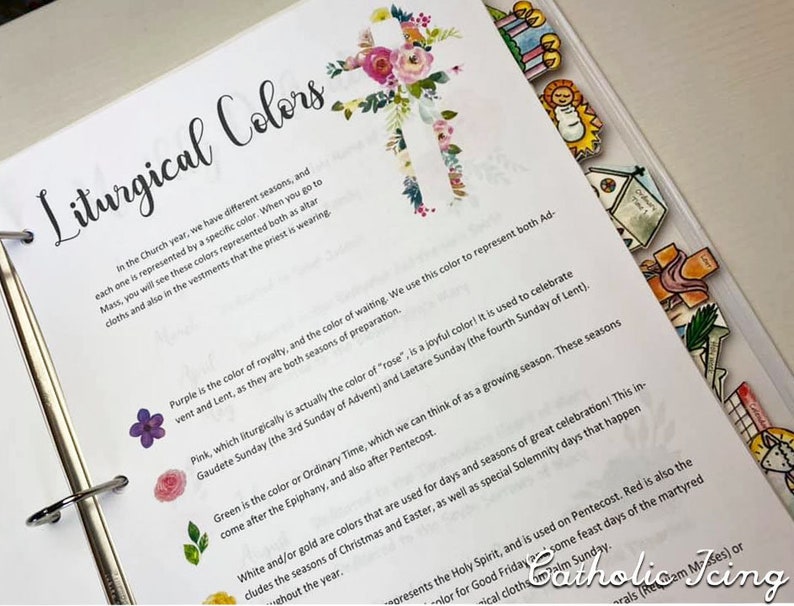 Liturgical Colors
In the Church year, we have different seasons, and
each one is represented by a specific color. When you go to
Mass, you will see these colors represented both as altar
cloths and also in the vestments that the priest is wearing.
Purple is the color of royalty, and the color of waiting. We use this color to represent both Ad-
vent and Lent, as they are both seasons of preparation.
Pink, which liturgically is actually the color of "rose", is a joyful color! It is used to celebrate
Gaudete Sunday (the 3rd Sunday of Advent) and Laetare Sunday (the fourth Sunday of Lent).
Green is the color or Ordinary Time, which we can think of as a growing season. These seasons
come after the Epiphany, and also after Pentecost.
White and/or gold are colors that are used for days and seasons of great celebration! This in-
cludes the seasons of Christmas and Easter, as well as special Solemnity days that happen
throughout the year.
represents the Holy Spirit, and is used on Pentecost. Red is also the
color for Good Friday, as some feast days of the martyred
gical clothes Palm Sunday.
erals (Requiem Masses) or
Ordinary
Time 1
Lent
Calendar
Catholic Icing